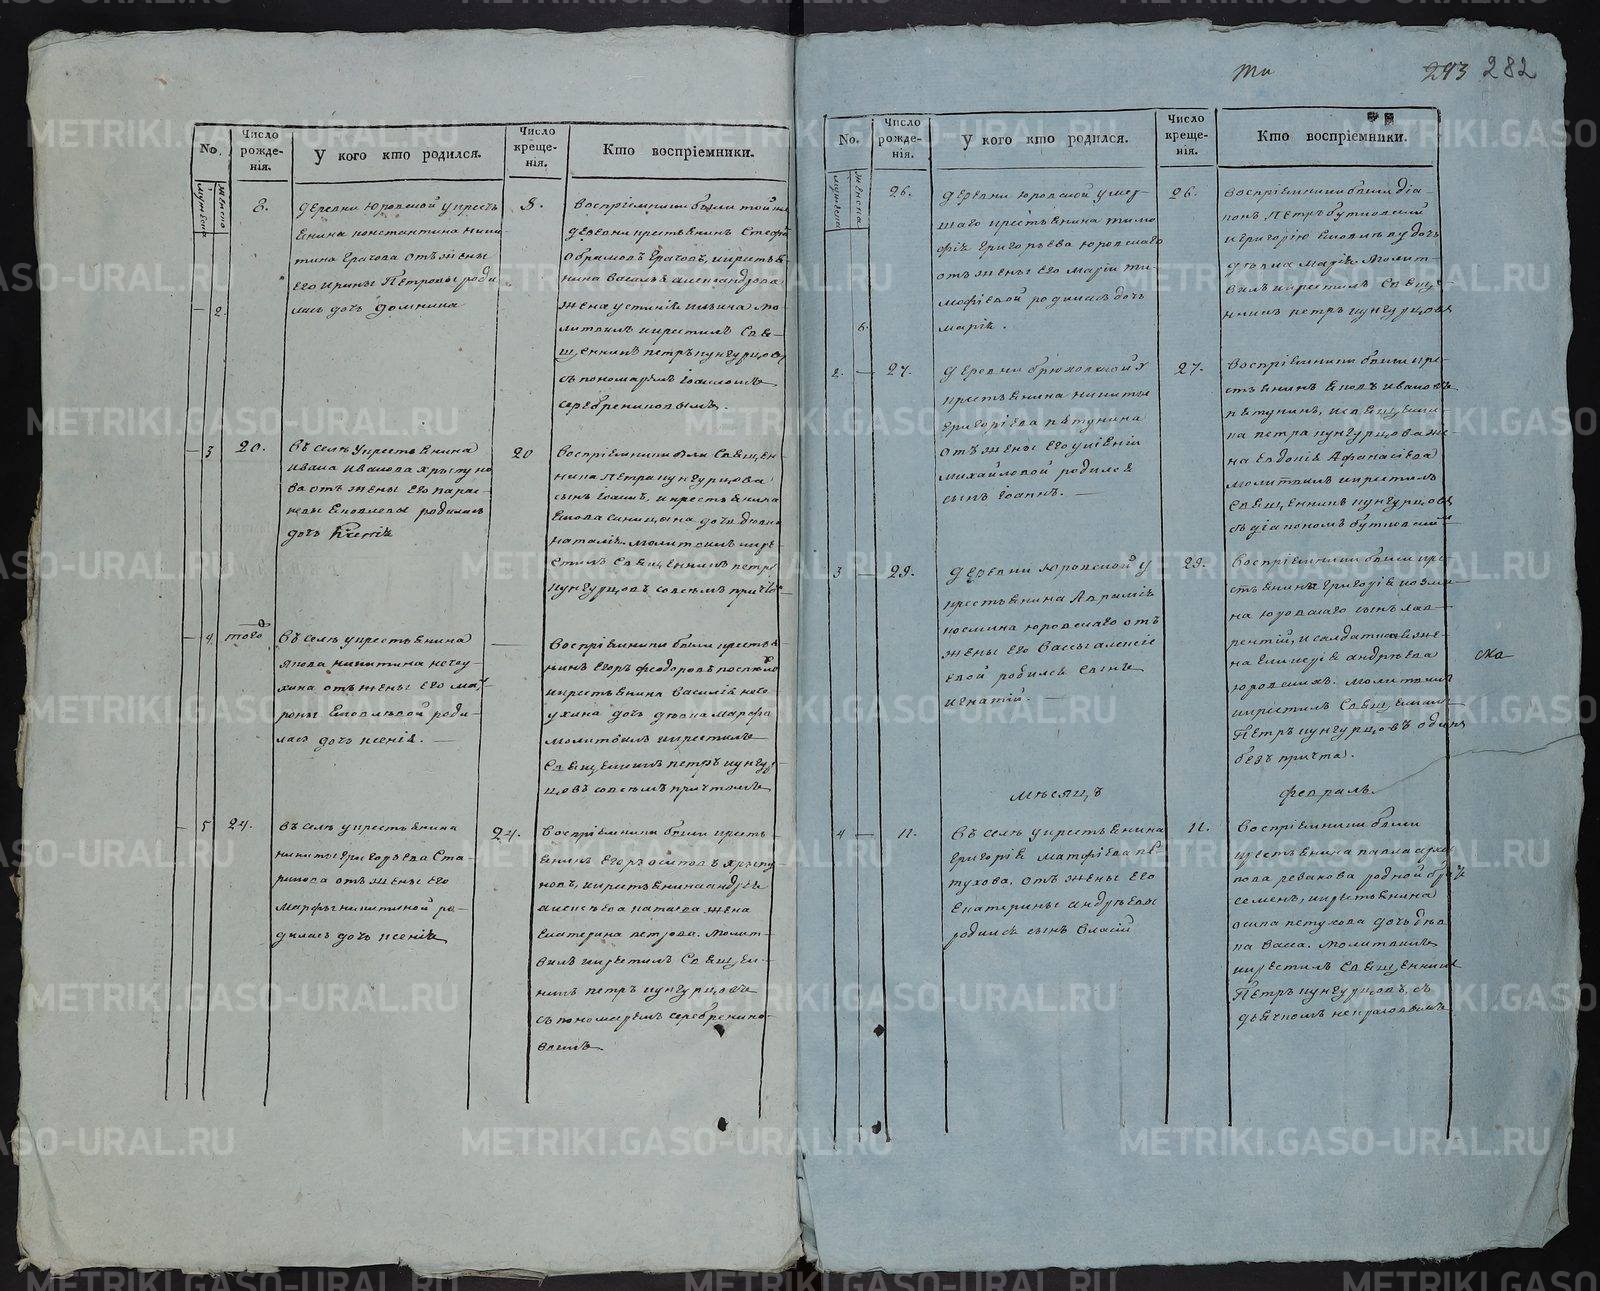 ти
243 282
No.
Число рожде-нія.
У кого кто родился.
Число креще-нія.
Кто воспріемники.
мужеска
женска
8.
деревни Юровской у кресть
янина константина ники
тина Грачова отъ жены
его ирины Петровы роди
2
лась дочь домника
8.
воспріемники были той же
деревни крестьянинъ Стефа
Абрамовъ Грачовъ, и крестья
нина василья александрова
жена устинія ильина мо-
литвилъ и крестилъ Свя-
щенникъ петръ кунгурцовъ
съ пономаремъ Іоанномъ
серебрениковымъ.
3
20.
въ селѣ у крестьянина
ивана иванова
отъ жены его парас-
кевы Яковлевы родилась
дочь Ксенія
20
воспріемники были Священ-
ника Петра кунгурцова
сынъ Іоаннъ, и крестьянина
Якова синицына дочь девка
наталія. молитвилъ и кре-
стилъ Священникъ петръ
кунгурцовъ совсемъ причто
4
того
въ селѣ у крестьянина
Якова никитина нечеу-
хина отъ жены его мат-
роны Яковлевой роди-
лась дочь ксенія. —
—
воспріемники были крестья
нинъ Егоръ феодоровъ
и крестьянина василія нече
ухина дочь девка марфа
молитвилъ и крестилъ
Священникъ петръ кунгур
цовъ совсемъ причтомъ
5
24.
въ селѣ у крестьянина
никиты григорьева Ста-
рикова отъ жены его
марфы никитиной ро-
дилась дочь ксенія
24.
воспріемники были кресть-
янинъ Егоръ осиповъ хрыпу-
новъ, и крестьянина андрея
алексѣева жена
Екатерина петрова. молит-
вилъ и крестилъ Священ-
никъ петръ кунгурцовъ
съ пономаремъ серебренико-
вымъ.
No.
Число рожде-нія.
У кого кто родился.
Число креще-нія.
Кто воспріемники.
мужеска
женска
26.
деревни Юровской умер-
шаго крестьянина тимо
фея Григорьева Юровскаго
отъ жены его маріи ти-
мофѣевой родилась дочь
6.
марія.
26.
воспріемники были діа-
конъ Петръ бутковскій
и григорію Яковлеву дочь
девка марія. молит
вилъ и крестилъ Свяще-
нникъ петръ кунгурцовъ
2.
—
27.
деревни брюховской у
крестьянина никиты
Григоріева пѣтунина
отъ жены его
михайловой родился
сынъ Іоаннъ. —
27.
воспріемники были кре-
стьянинъ Яковъ ивановъ
пѣтунинъ, и священни
ка петра кунгурцова же-
на Евдокія Афанасіева
молитвилъ и крестилъ
Священникъ кунгурцовъ
съ діакономъ бутковскимъ
3
—
29.
деревни Юровской у
крестьянина Аврамія
космина юровскаго отъ
жены его Вассы алексіе
евой родился Сынъ
игнатій. —
29.
воспріемники были кре-
стьянина Григорія козми-
на юровскаго сынъ лав-
рентій, и салдатка же-
на андрѣева
юровскихъ. молитвилъ
и крестилъ Священникъ
Петръ кунгурцовъ одинъ
безъ причта.
ска
мѣсяцъ
февраль.
4
—
11.
въ селѣ у крестьянина
Григорія матфіева пѣ
тухова, отъ жены его
Екатерины андрѣевы
родился сынъ Власій
11.
воспріемники были
крестьянина павла архи
пова реванова родной братъ
семенъ, и крестьянина
осипа петухова дочь дѣв
ка васса. молитвилъ
и крестилъ Священникъ
Петръ кунгурцовъ, съ
дьячкомъ некрасовымъ